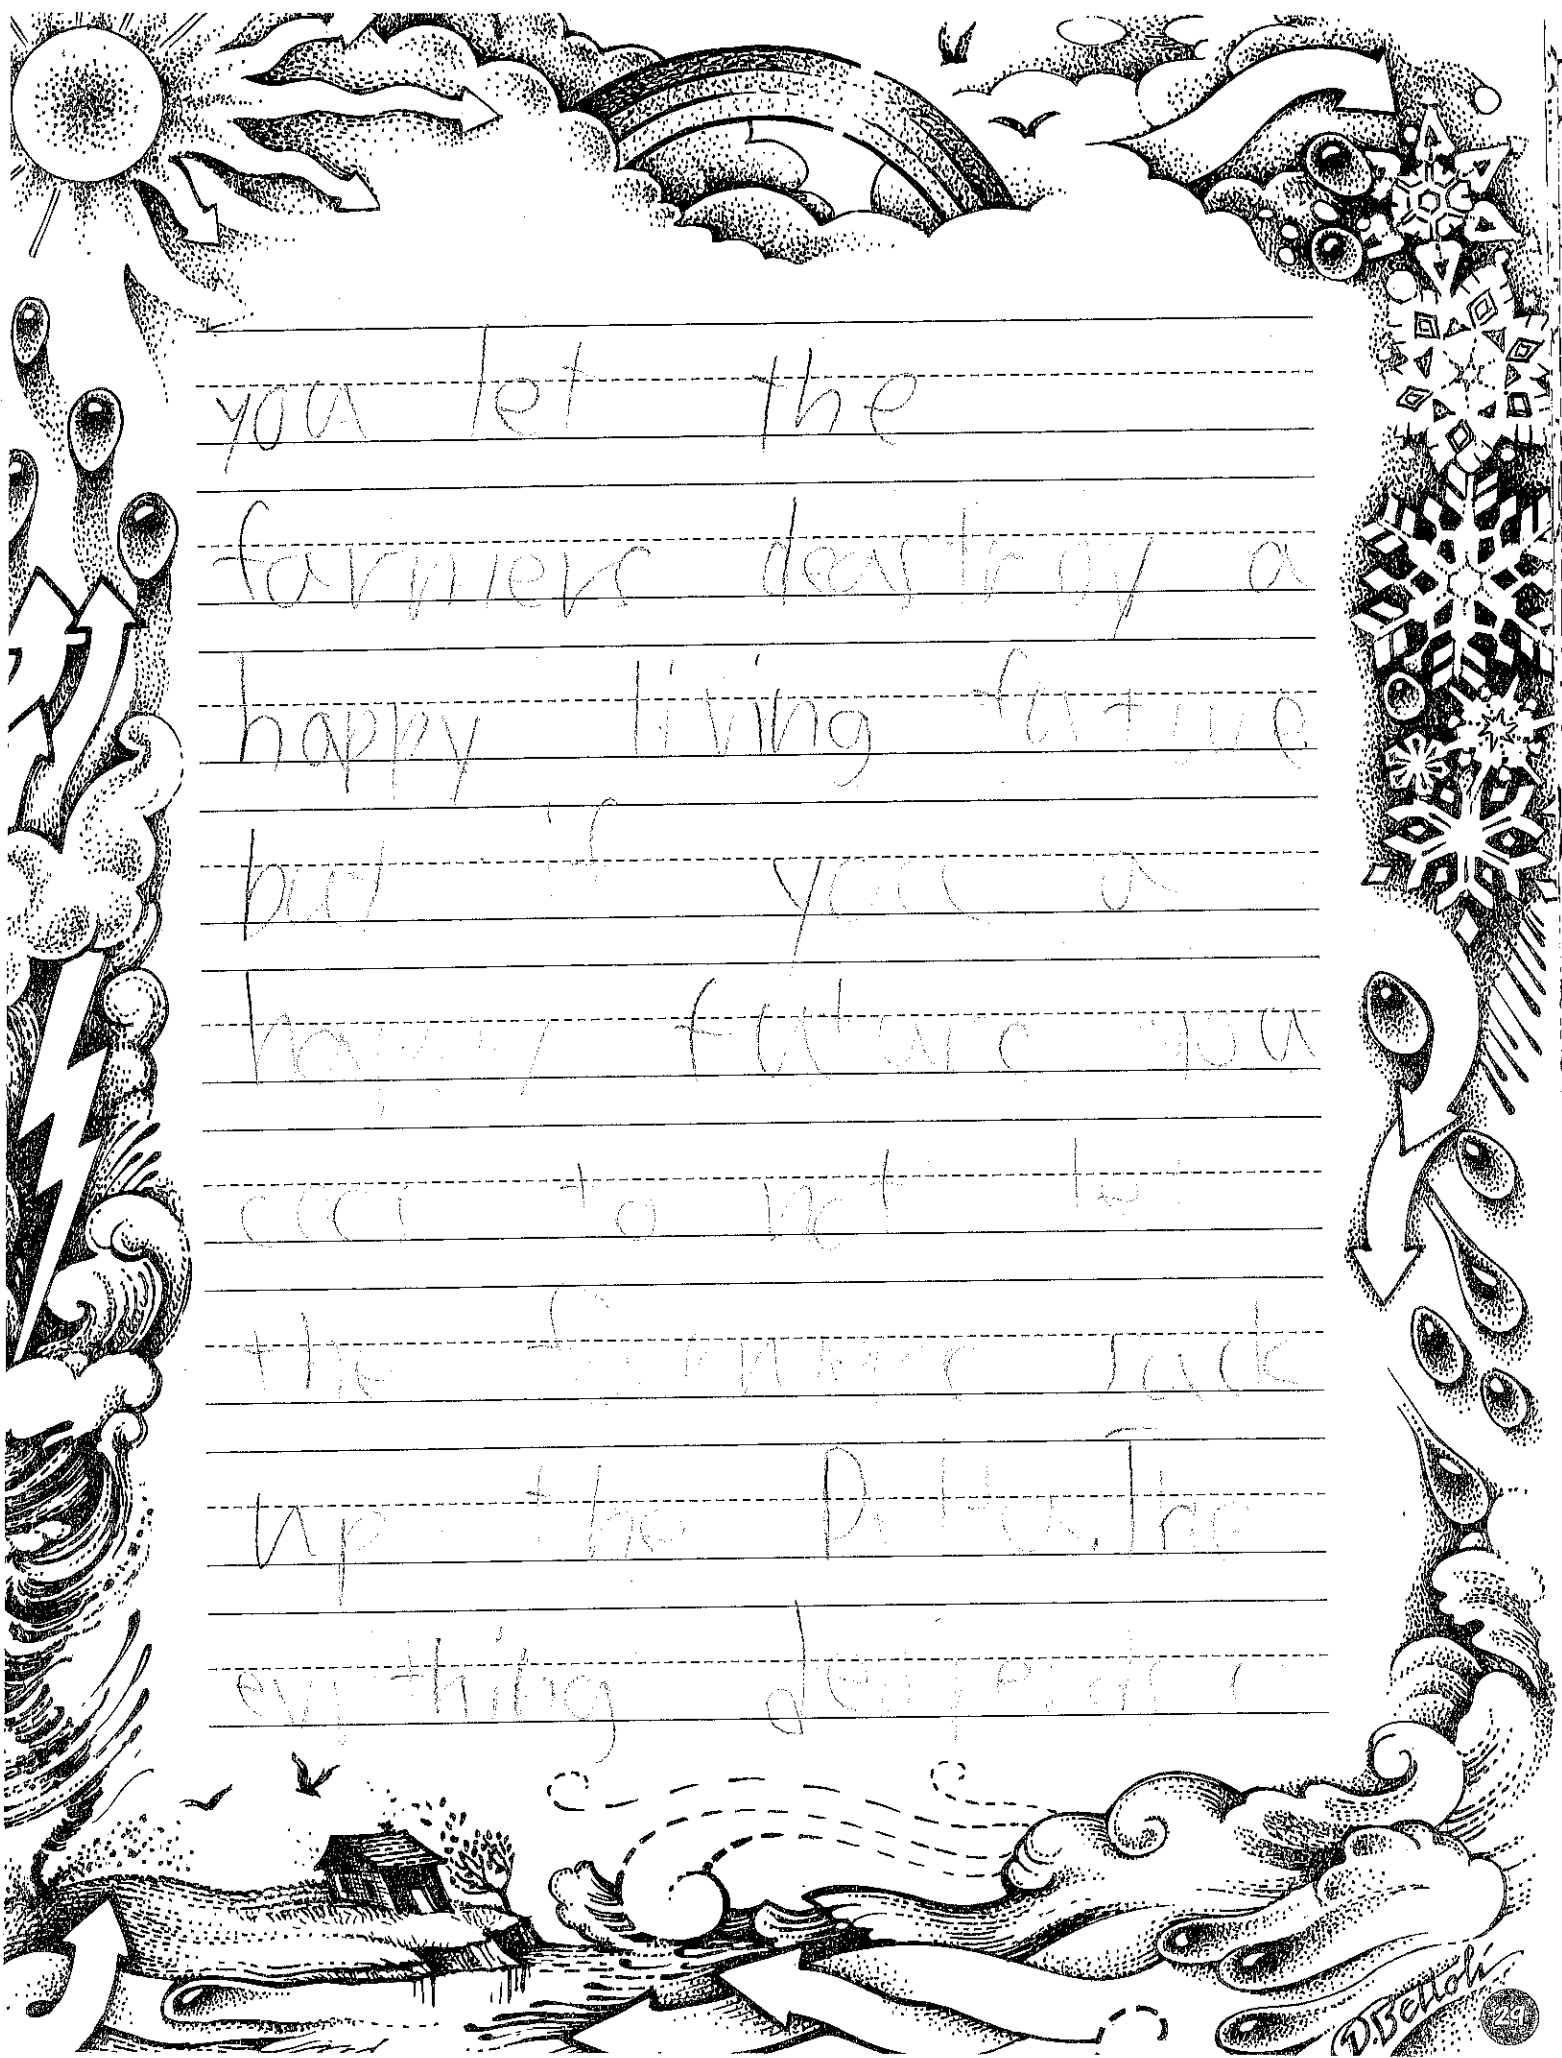 you let the
farmers deastroy a
happy living future
but if you a
happy future you
to not let
the farmers suck
up the
evrything
D.Bettoli
29